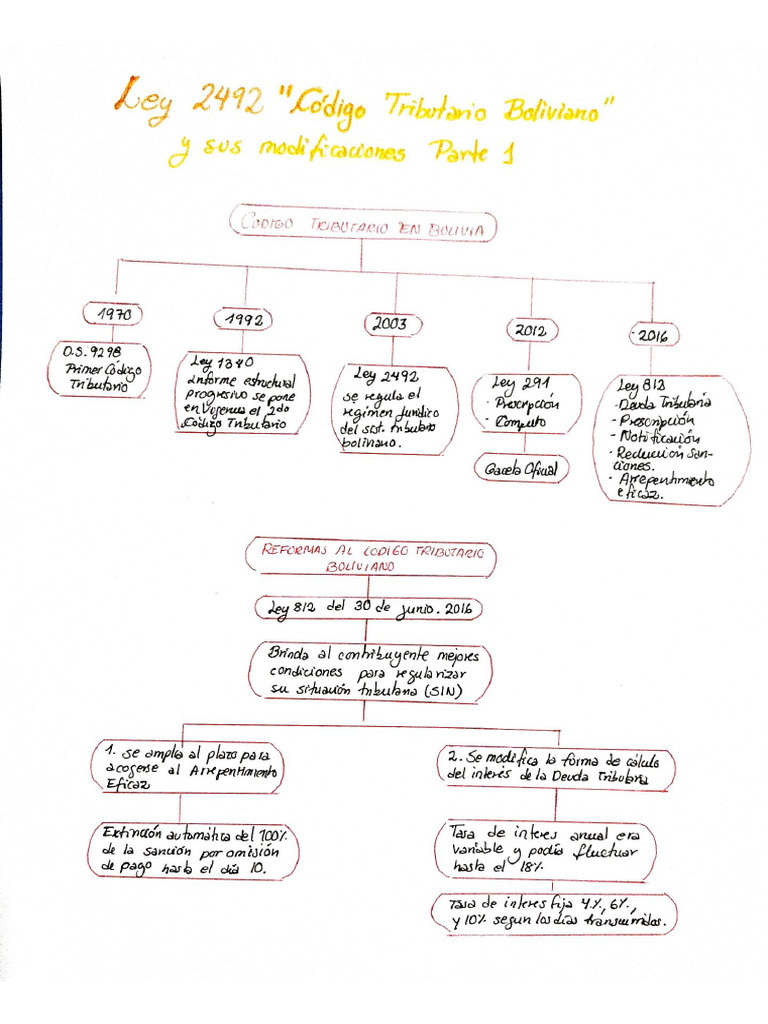 Ley 2492 "Código Tributario Boliviano"
y sus modificaciones Parte 1
CODIGO TRIBUTARIO EN BOLIVIA
1970
D.S. 9298
Primer Código
Tributario
1992
Ley 1340
Informe estructural
progresivo se pone
en vigencia el 2do
Código Tributario
2003
Ley 2492
se regula el
regimen jurídico
del sist. tributario
boliviano.
2012
Ley 291
· Prescripción
· Computo
Gaceta Oficial
2016
Ley 812
· Deuda Tributaria
· Prescripción
· Notificación
· Reducción san-
ciones.
· Arrepentimiento
eficaz.
REFORMAS AL CODIGO TRIBUTARIO
BOLIVIANO
Ley 812 del 30 de junio. 2016
Brinda al contribuyente mejores
condiciones para regularizar
su situación tributaria (SIN)
1. se amplia al plazo para
acogerse al Arrepentimiento
Eficaz
Extinción automática del 100%
de la sanción por omisión
de pago hasta el día 10.
2. Se modifica la forma de cálculo
del interés de la Deuda Tributaria
Tasa de interes anual era
variable y podía fluctuar
hasta el 18%.
Tasa de interes fija 4%, 6%,
y 10% segun los días transcurridos.